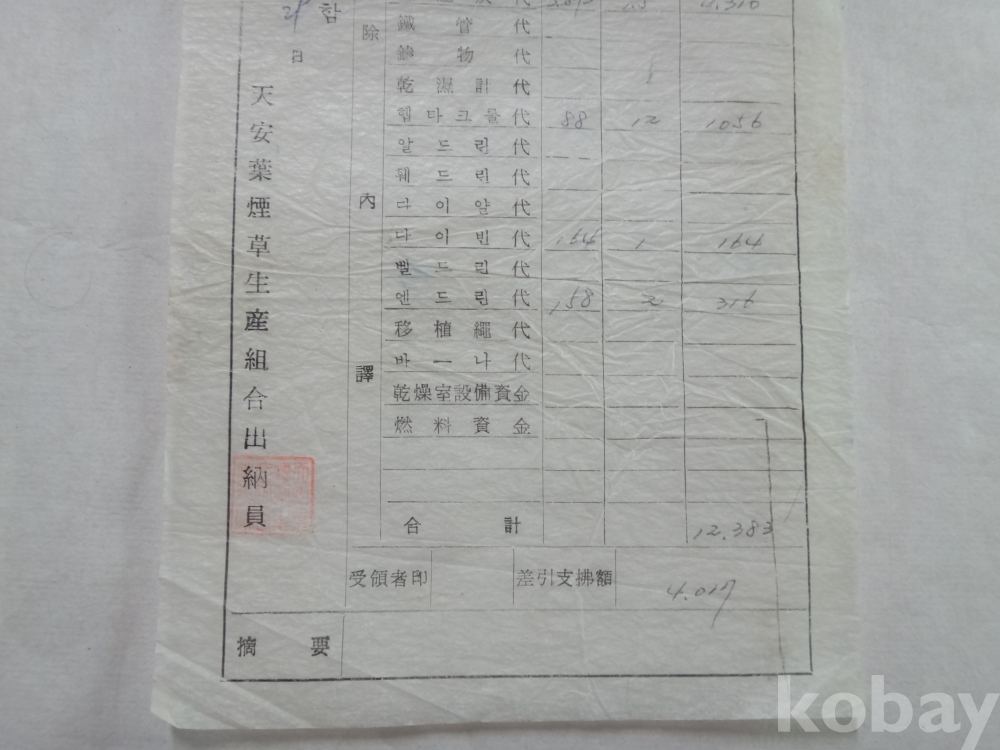 함
日
天安葉煙草生産組合出納員
除
內
譯
代
鐵管代
鑄物代
乾濕計代
헵타크롤代 88 12 1056
알드린代
훼드린代
다이얄代
다이빈代 164 1 164
빨드린代
엔드린代 158 2 316
移植繩代
바ー나代
乾燥室設備資金
燃料資金
合計 12.383
受領者印 差引支拂額 4.017
摘要
kobay